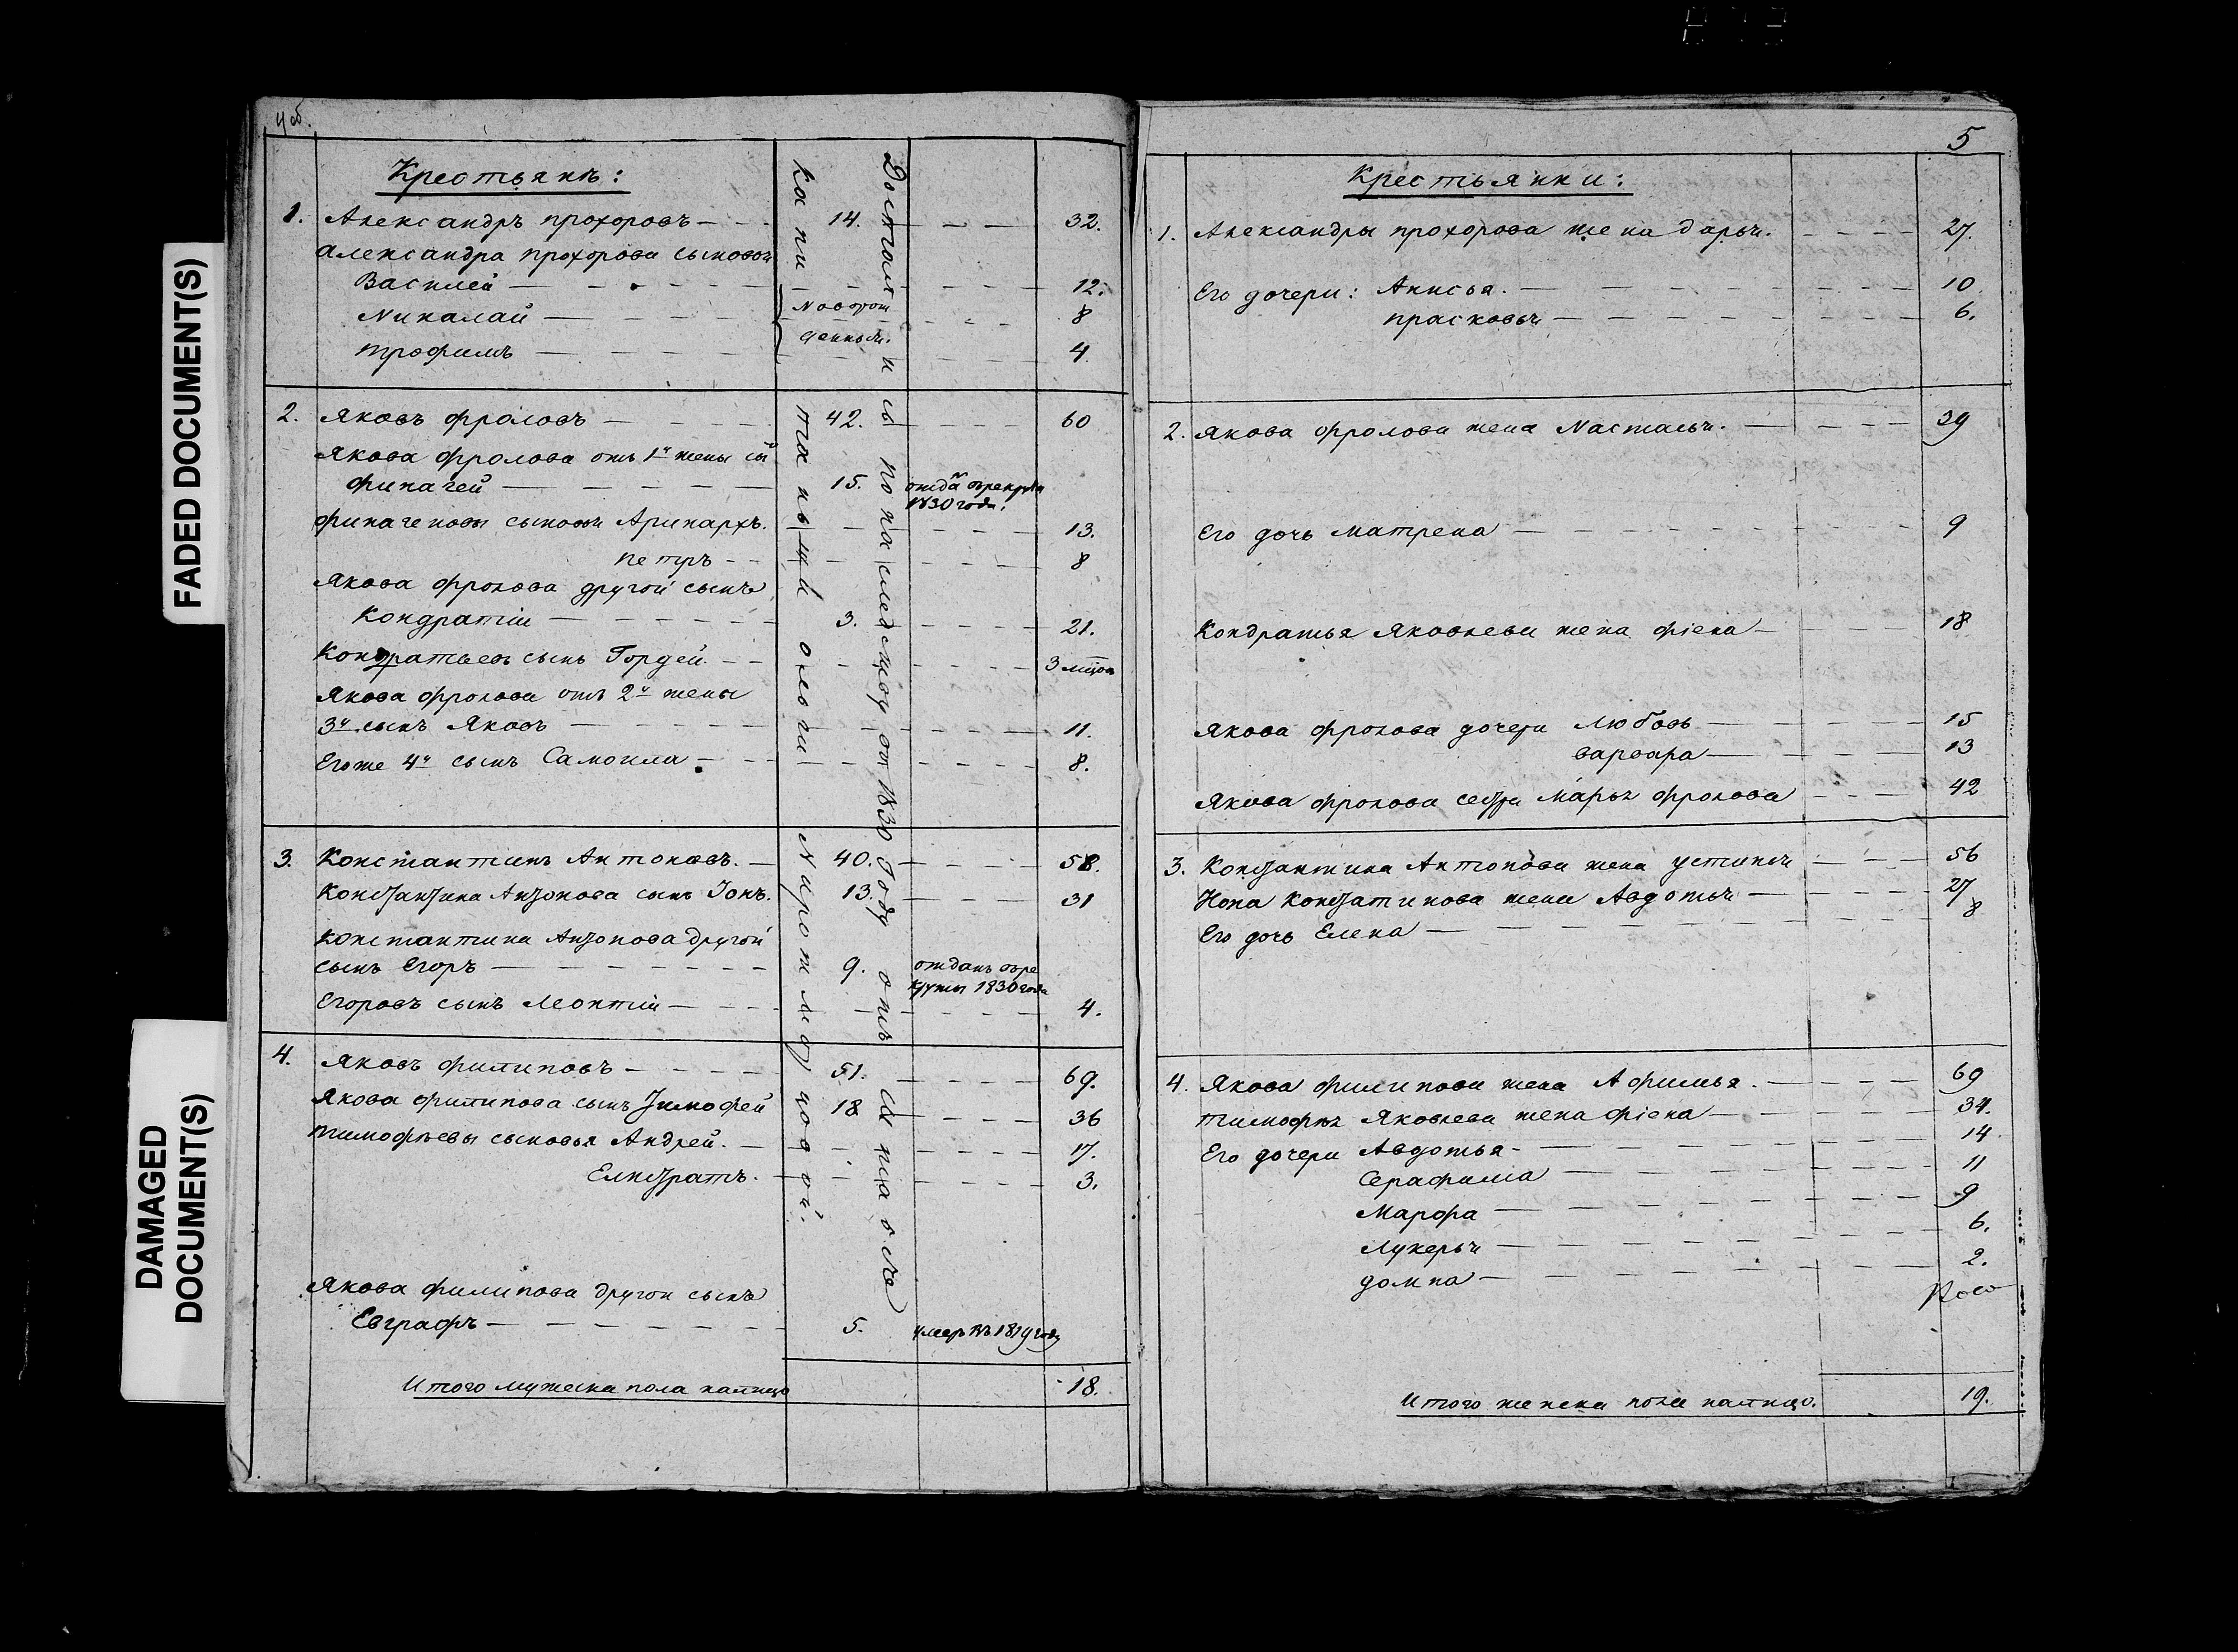 4 об.
Крестьянъ:
1. Александръ прохоровъ 14. 32.
Александра прохорова сыновья
Василей 12.
Николай 8
трофимъ 4
Новорож
денныи.
2. Яковъ фроловъ 42. 60
Якова фролова отъ 1й жены сы
финагей 15. отда в рекруты
1830 года.
финагеновы сыновья Аринархъ. 13.
петръ 8
Якова фролова другой сынъ
Кондратiй 3. 21.
Кондратьевъ сынъ Гордей. 3 мцов
Якова фролова отъ 2й жены
3й сынъ Яковъ 11.
Егоже 4й сынъ Самоила 8.
3. Константинъ Антоновъ. 40. 58.
Константина Антонова сынъ Iонъ. 13. 31
Константина Антонова другой
сынъ Егоръ 9. отданъ в ре
круты 1830 года
Егоровъ сынъ Леонтiй 4.
4. Яковъ филиповъ 51. 69.
Якова филипова сынъ Тимофей 18 36
тимофѣевы сыновья Андрей. 17.
Елистратъ. 3.
Якова филипова другой сынъ
Евграфъ 5. умеръ въ 1819 году
Итого мужеска пола налицо 18.
Достались по наследству от 1830 году отъ
5
Крестьянки:
1. Александры прохорова жена дарья. 27.
Его дочери: Анисья. 10
прасковья 6.
2. Якова фролова жена Настасья. 39
Его дочь матрена 9
Кондратья Яковлева жена фiена 18
Якова фролова дочери любовь 15
варвара 13
Якова фролова сестра Марья фролова 42
3. Константина Антонова жена устинья 56
Иона Константинова жена Авдотья 27
Его дочь Елена 8
4. Якова филипова жена Афимья. 69
тимофѣя Яковлева жена фiена 34.
Его дочери Авдотья 14
Серафима 11
Марфа 9
лукерья 6.
домна 2.
Итого женска пола налицо. 19.
FADED DOCUMENT(S)
DAMAGED
DOCUMENT(S)